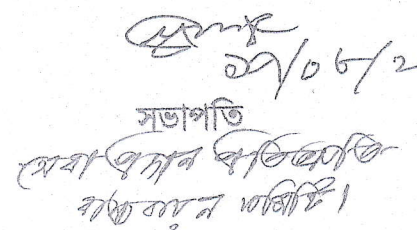 ২৭/০৮/২
সভাপতি
সেবা প্রদান প্রতিশ্রুতি
বাস্তবায়ন কমিটি।